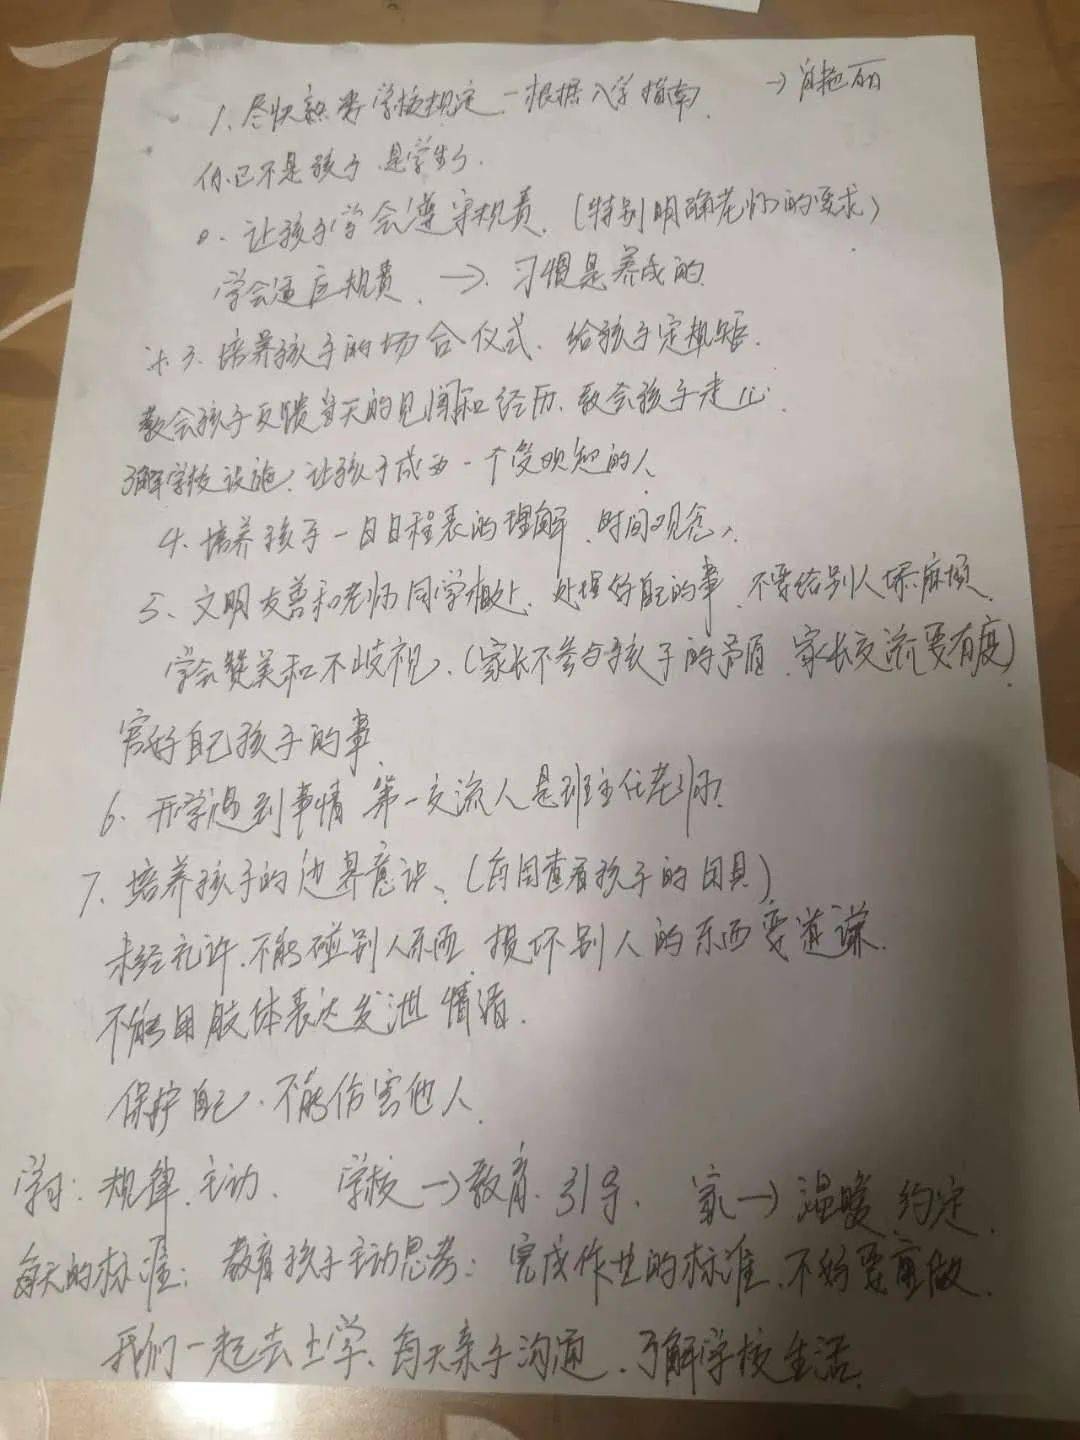 1、尽快熟悉学校规定－根据入学指南. →肖艳丽
你已不是孩子.是学生了.
2、让孩子学会遵守规责.(特别明确老师的要求)
学会适应规责. → 习惯是养成的.
3、培养孩子的场合仪式、给孩子定规矩.
教会孩子反馈每天的见闻和经历、教会孩子走心.
了解学校设施、让孩子成为一个受欢迎的人、
4、培养孩子一日日程表的理解、时间观念、
5、文明友善和老师同学相处、处理好自己的事、不要给别人添麻烦.
学会赞美和不歧视、(家长不参与孩子的矛盾、家长交流要有度)
管好自己孩子的事.
6、开学遇到事情 第一交流人是班主任老师.
7、培养孩子的边界意识、(每周查看孩子的用具)
未经允许.不能碰别人东西 损坏别人的东西要道谦.
不能用肢体表达发泄情绪.
保护自己.不能伤害他人.
学习：规律.主动. 学校→教育.引导. 家→温暖.约定.
每天的标准：教育孩子主动思考：完成作业的标准.不好要重做.
我们一起去上学、每天亲子沟通.了解学校生活.